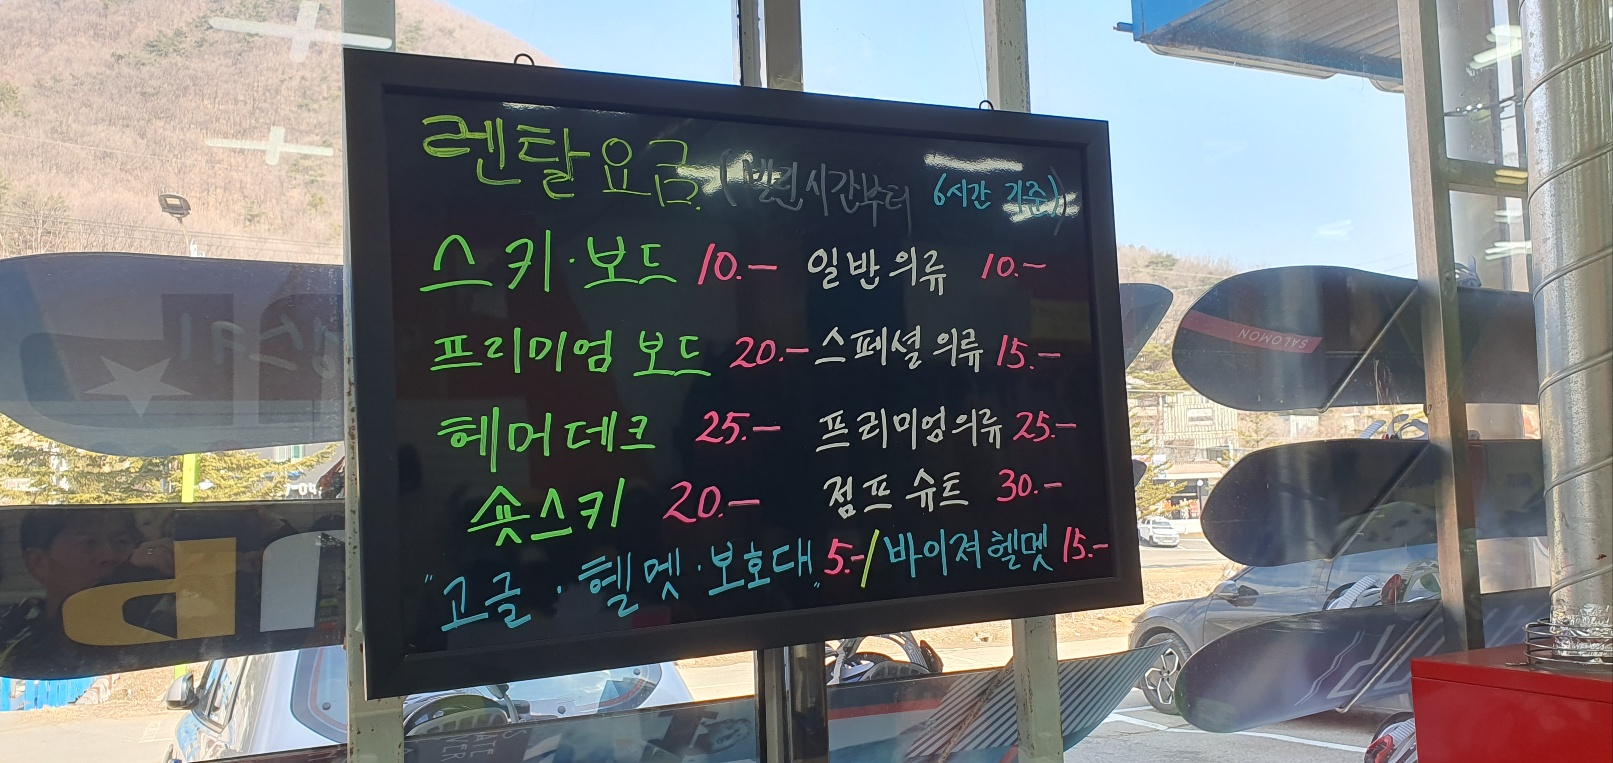 렌탈요금 (빌린시간부터 6시간 기준)
스키·보드 10.- 일반의류 10.-
프리미엄 보드 20.- 스페셜의류 15.-
헤머데크 25.- 프리미엄의류 25.-
숏스키 20.- 점프슈트 30.-
"고글·헬멧·보호대" 5.-/바이져헬멧 15.-
SALOMON